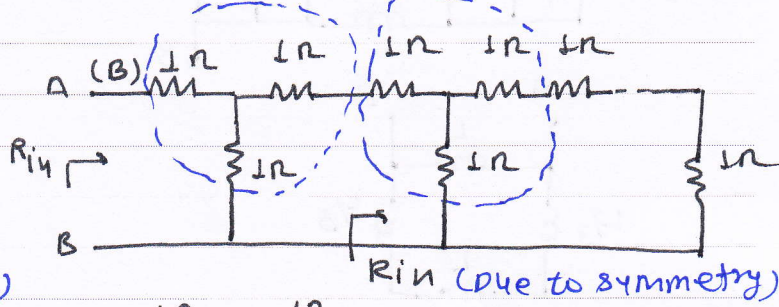 1Ω 1Ω 1Ω 1Ω 1Ω
A (B)
Rin 1Ω 1Ω 1Ω
B
Rin (Due to symmetry)